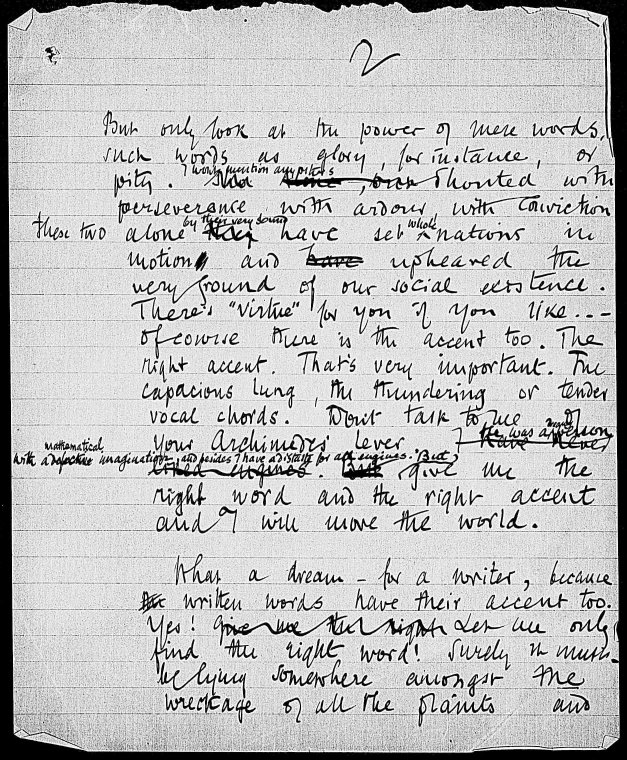 2
But only look at the power of mere words,
such words as glory, for instance, or
pity. I won't mention any others. Shouted with
perseverance with ardour with conviction
these two alone by their very sound have set whole nations in
motion and upheaved the
very ground of our social existence.
There's "virtue" for you if you like...-
Of course there is the accent too. The
right accent. That's very important. The
capacious lung, the thundering or tender
vocal chords. Don't talk to me of
your Archimedes' lever. He was a person
with a defective mathematical imagination, and besides I have a distaste for all engines. But give me the
right word and the right accent
and I will move the world.
What a dream - for a writer, because
written words have their accent too.
Yes! Let me only
find the right word! Surely it must
be lying somewhere amongst the
wreckage of all the plaints and